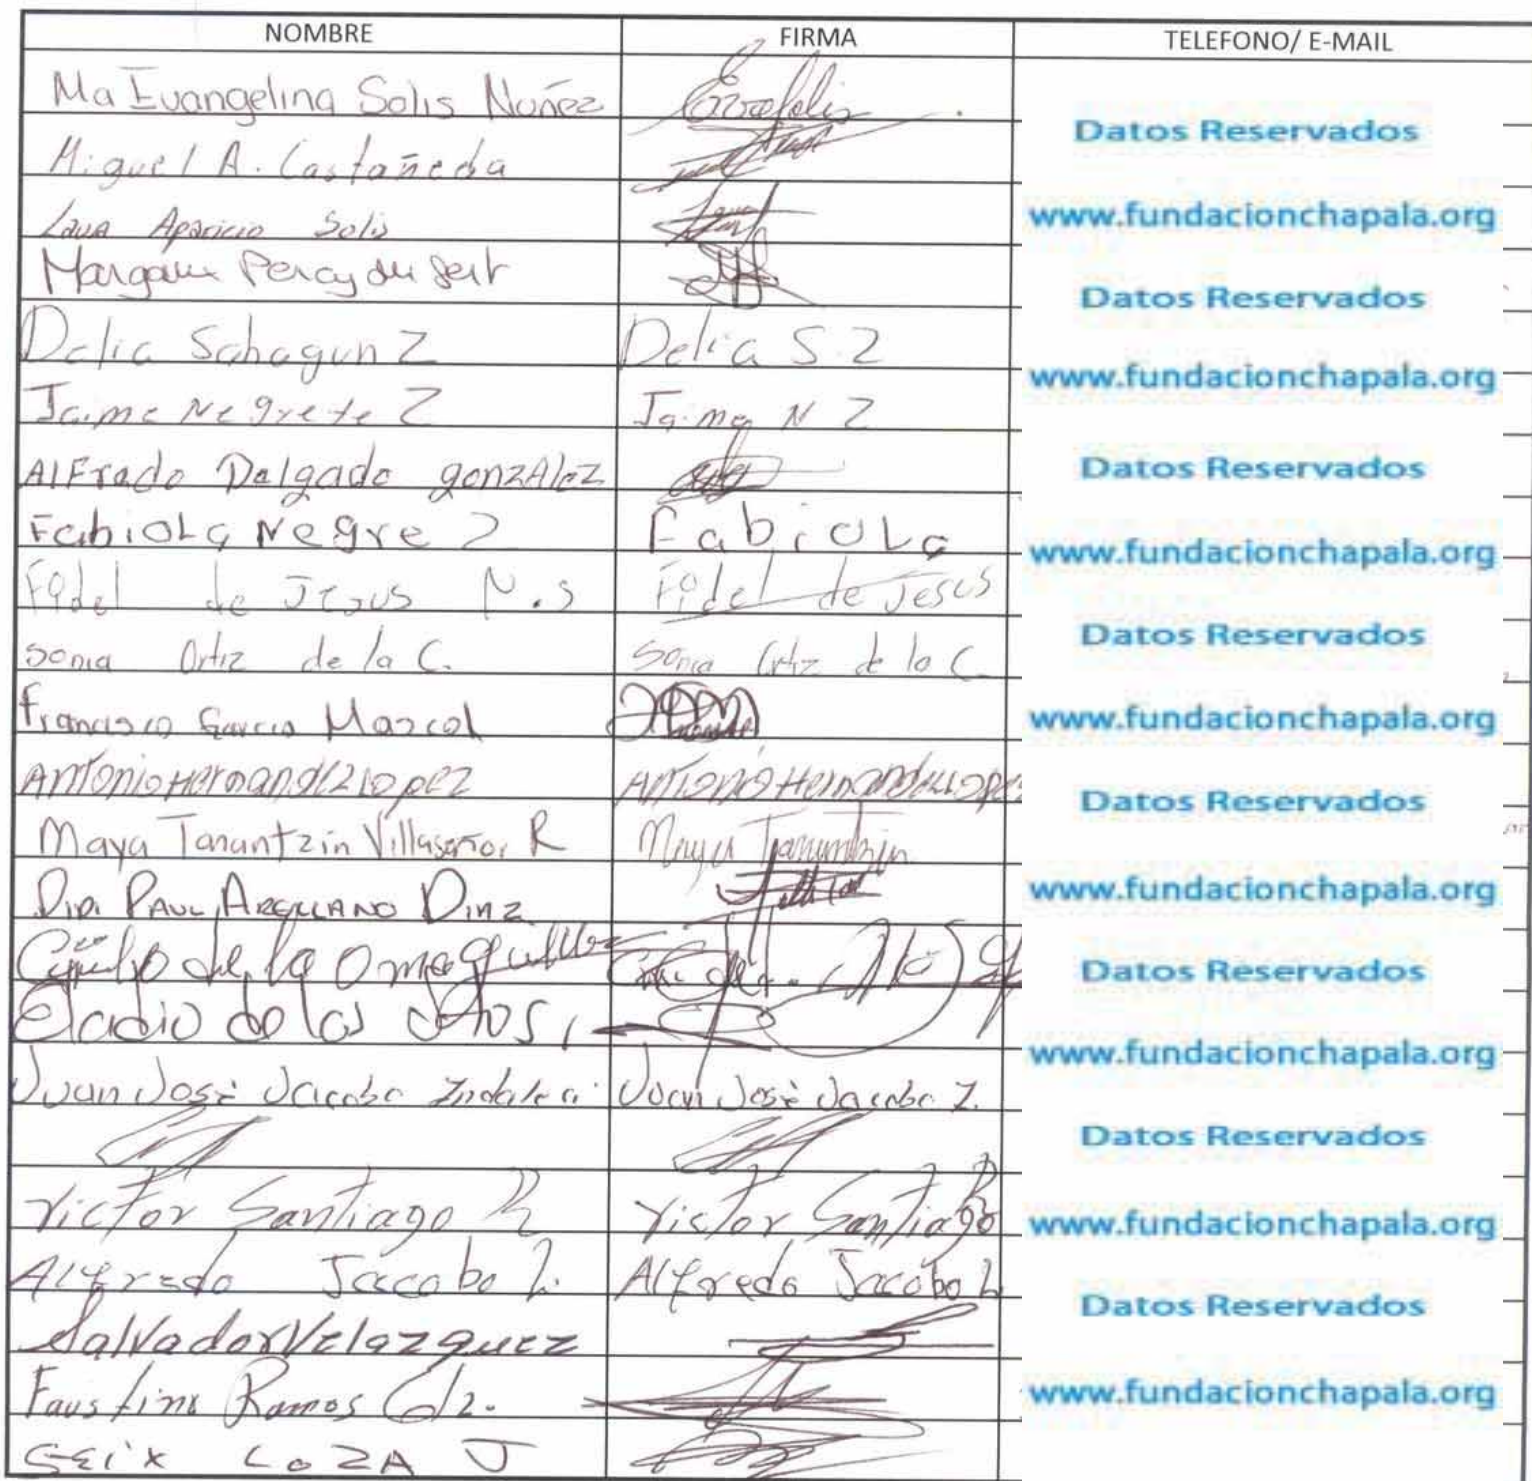 NOMBRE FIRMA TELEFONO/ E-MAIL
Ma Evangelina Solis Nuñez
Datos Reservados
Miguel A. Castañeda
www.fundacionchapala.org
Aparicio Solis
Datos Reservados
Delia Sahagun Z Delia S. Z
www.fundacionchapala.org
Jaime Negrete Z Jaime N Z
Alfredo Delgado gonzAlez Datos Reservados
Fabiola Negre Z Fabiola www.fundacionchapala.org
Fidel de Jesus N.S Fidel de Jesus
Datos Reservados
Sonia Ortiz de la C. Sonia Ortiz de la C
Francisco Garcia www.fundacionchapala.org
Antonio Hernandez lopez Antonio Hernandez Lopez
Datos Reservados
Maya Tanantzin Villaseñor R Maya Tanantzin
Paul Arellano www.fundacionchapala.org
de la Datos Reservados
Eladio de los
www.fundacionchapala.org
Juan José Jacobo Juan José Jacobo Z.
Datos Reservados
Victor Santiago R Victor Santiago R www.fundacionchapala.org
Alfredo Jacobo Z. Alfredo Jacobo Z
Datos Reservados
Salvador Velazquez
Faustino Ramos Glz. www.fundacionchapala.org
LOZA J